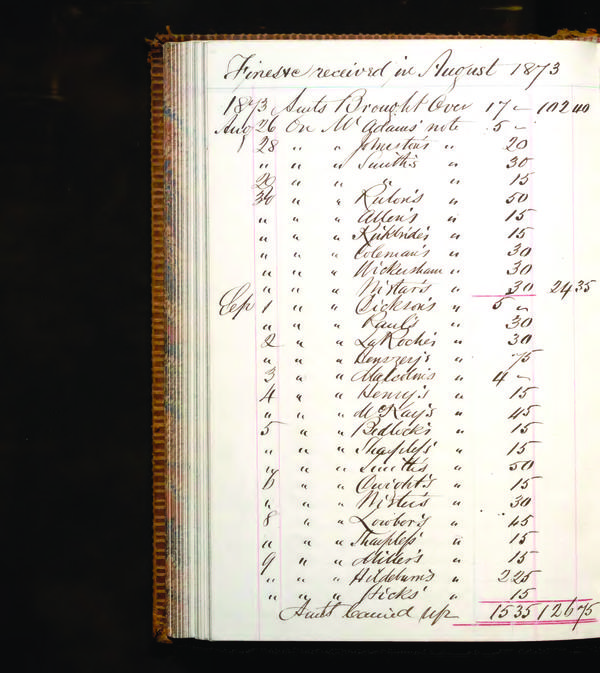 Fines &c received in August 1873
1873 Amts Brought Over 17 - 102 40
Aug 26 On Mc Adams' note 5 -
28 " " Johnston's " 20
" " " Smith's " 30
29 " " " " 15
30 " " Rulon's " 50
" " " Allen's " 15
" " " Kirkbride's " 15
" " " Coleman's " 30
" " " Wickersham " 30
" " " Wistar's " 30 24 35
Sep 1 " " Dickson's " 5 -
" " " Paul's " 30
2 " " LaRoche's " 30
" " " Henszey's " 75
3 " " Malcolm's " 4 -
4 " " Henry's " 15
" " " McKay's " 45
5 " " Redlick's " 15
" " " Sharpless' " 15
" " " Smith's " 50
6 " " Dwight's " 15
" " " Wister's " 30
8 " " Lowber's " 45
" " " Sharpless' " 15
9 " " Miller's " 15
" " " Hildeburn's " 2 25
" " " Hicks' " 15
Amts Carried up 15 35 126 75